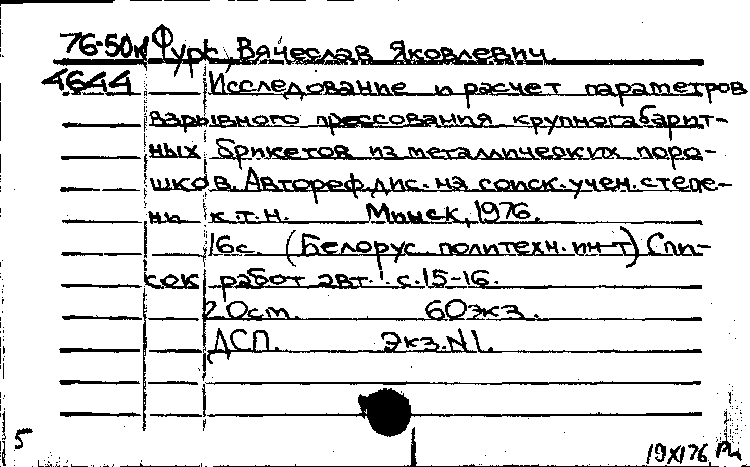 76-50к Фурс, Вячеслав Яковлевич
4644 Исследование и расчет параметров
взрывного прессования крупногабарит-
ных брикетов из металлических поро-
шков. Автореф. дис. на соиск. учен. степе-
ни к.т.н. Минск, 1976.
16с. (Белорус. политехн. ин-т) Спи-
сок работ авт.: с.15-16.
20см. 60экз.
ДСП. Экз.N1.
5
19X176